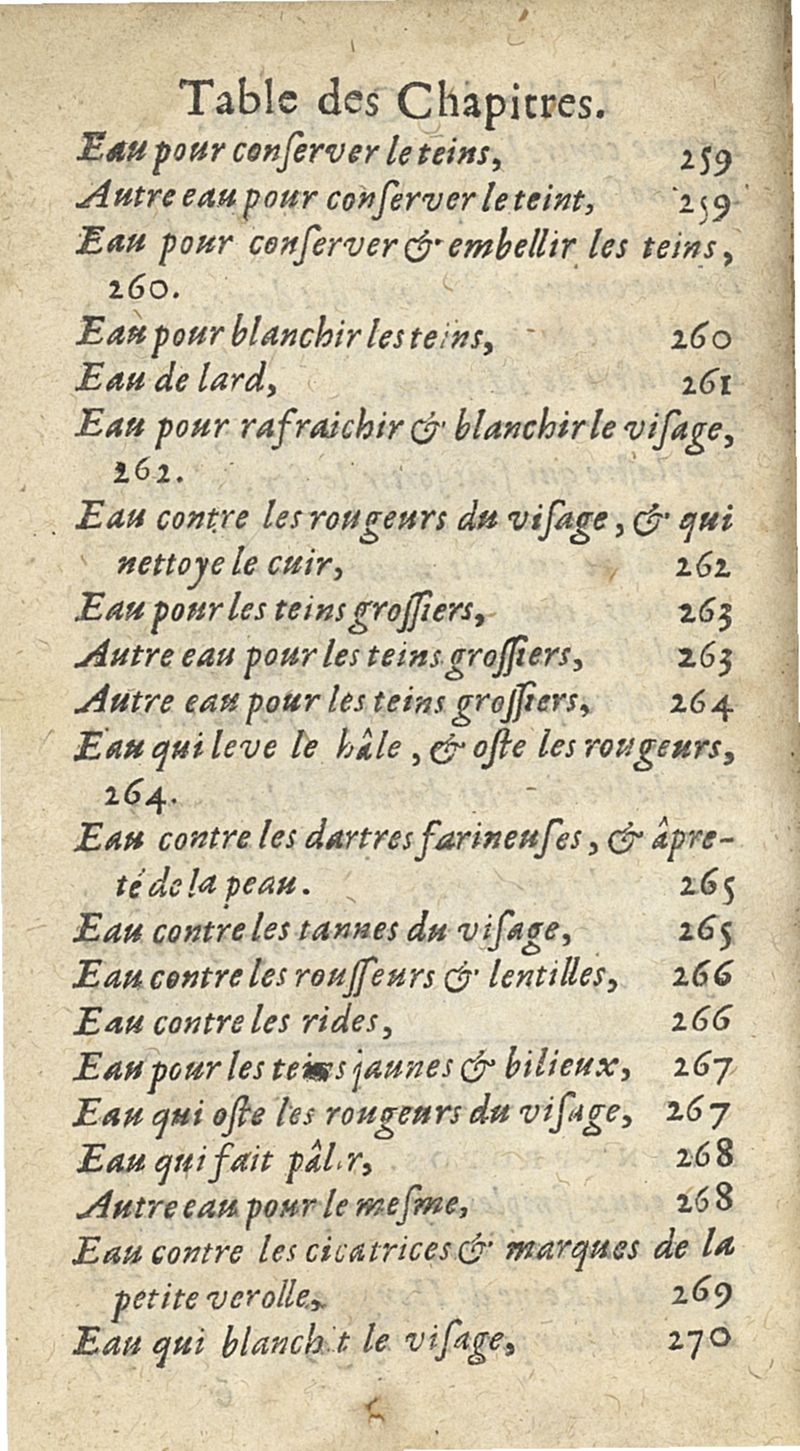 Table des Chapitres.
Eau pour conſerver le teins, 259
Autre eau pour conſerver le teint, 259
Eau pour conſerver & embellir les teins,
260.
Eau pour blanchir les teins, 260
Eau de lard, 261
Eau pour rafraichir & blanchir le viſage,
262.
Eau contre les rougeurs du viſage, & qui
nettoye le cuir, 262
Eau pour les teins groſſiers, 263
Autre eau pour les teins groſſiers, 263
Autre eau pour les teins groſſiers, 264
Eau qui leve le hâle, & oſte les rougeurs,
264.
Eau contre les dartres farineuſes, & âpre-
té de la peau. 265
Eau contre les tannes du viſage, 265
Eau contre les rouſſeurs & lentilles, 266
Eau contre les rides, 266
Eau pour les teins jaunes & bilieux, 267
Eau qui oſte les rougeurs du viſage, 267
Eau qui fait pâlir, 268
Autre eau pour le meſme, 268
Eau contre les cicatrices & marques de la
petite verolle, 269
Eau qui blanchit le viſage, 270